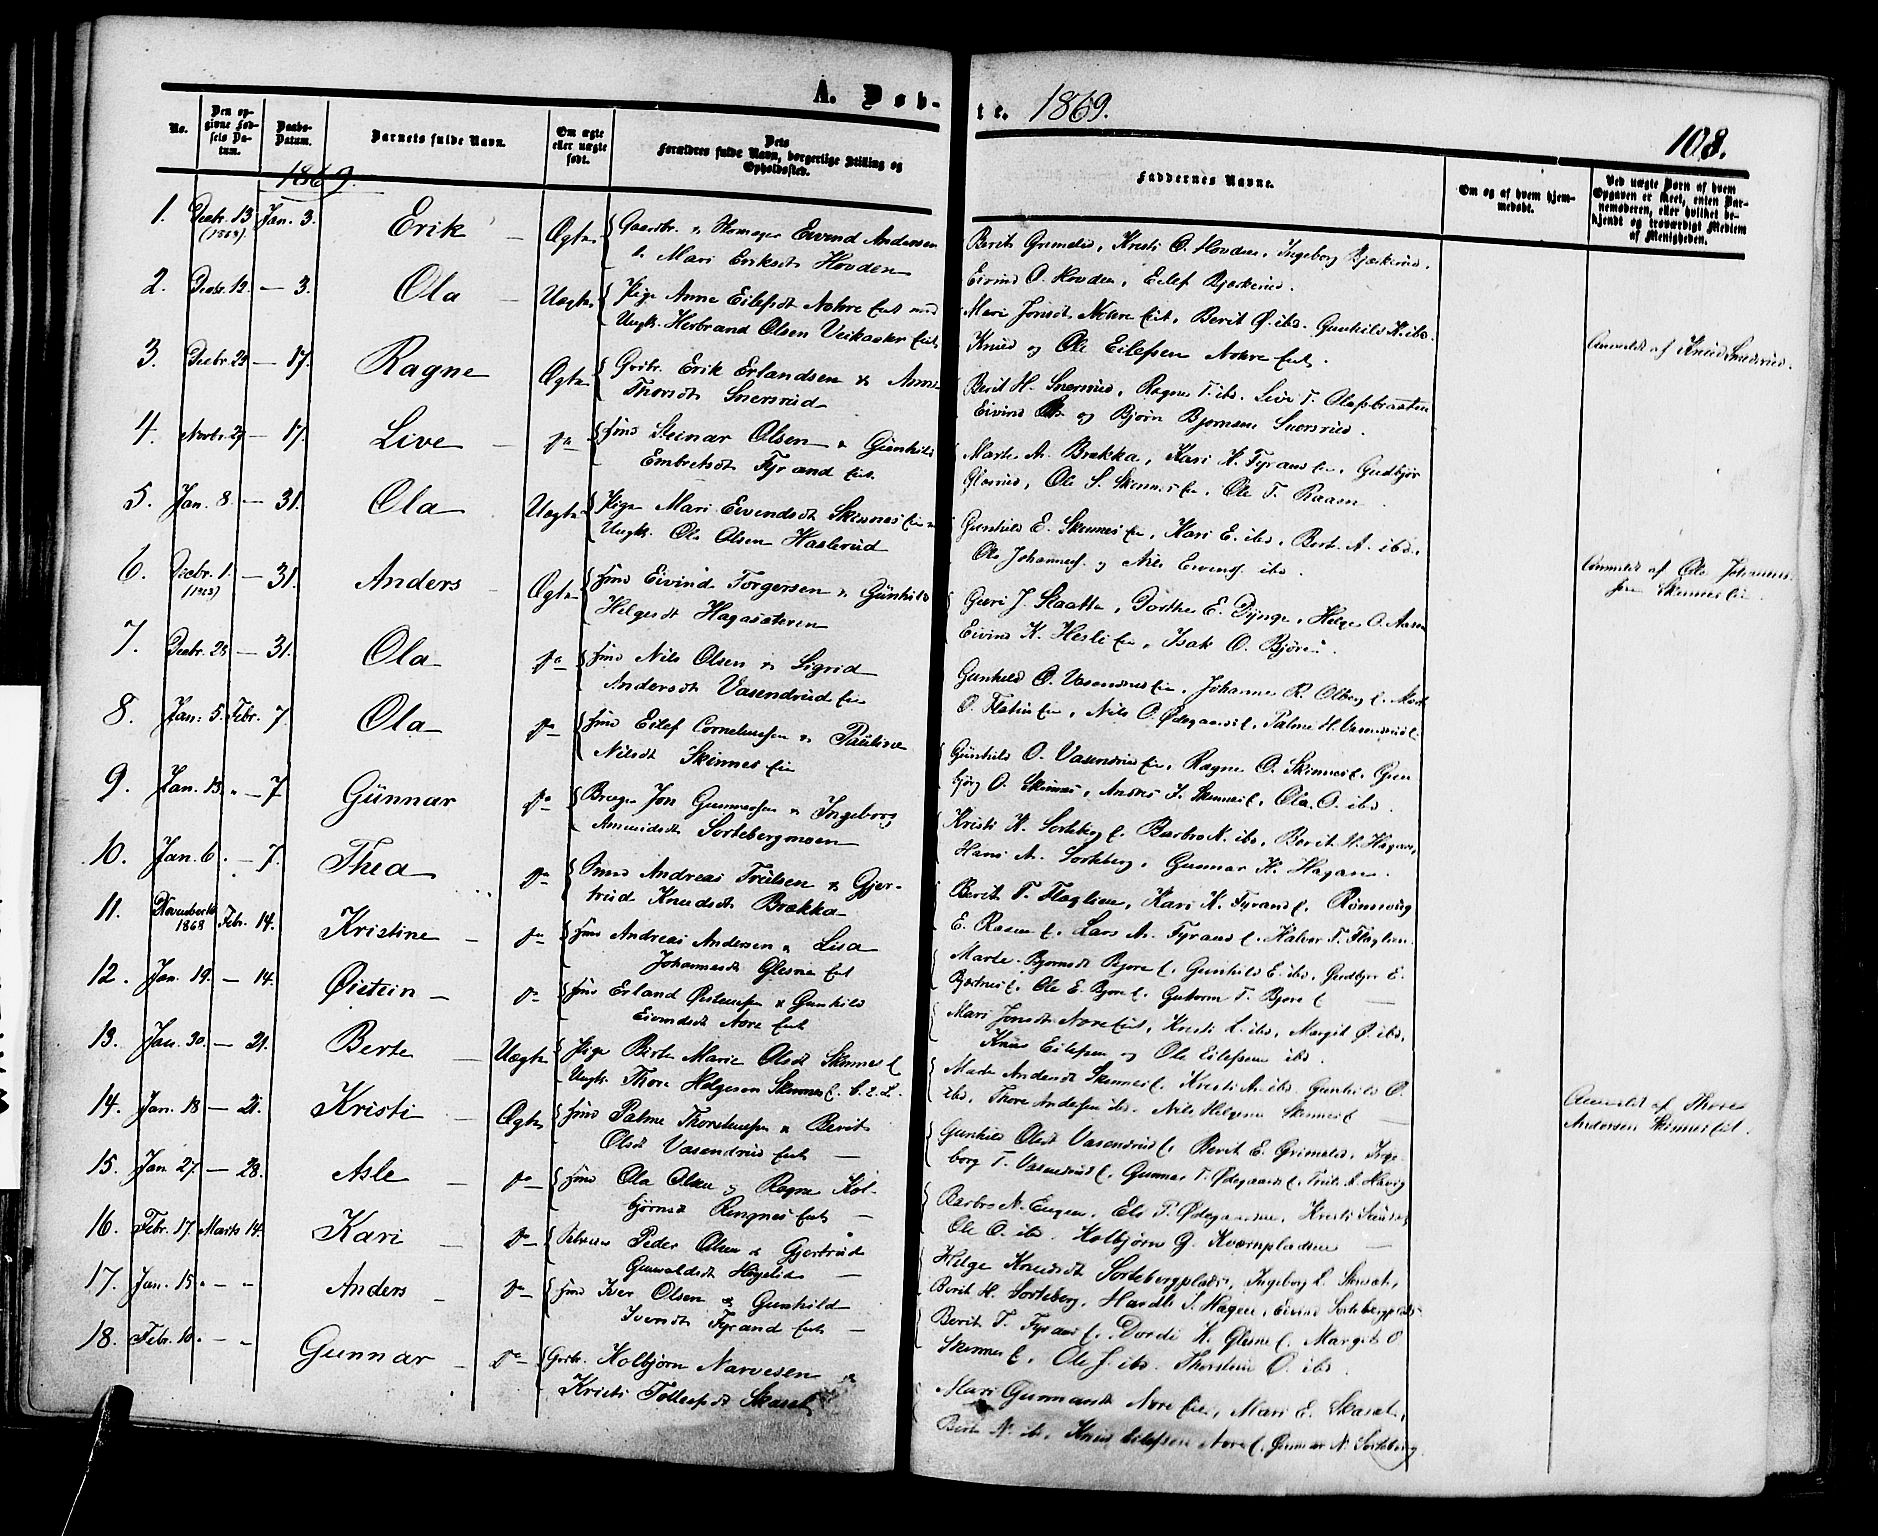 A. Døb-
te. 1869.
108.
No.
Den op-
givne Fød-
sels Da-
tum.
Daabs-
Datum.
Barnets fulde Navn.
Om ægte
eller uægte
født.
Dets
Forældres fulde Navn, borgerlige Stilling og
Opholdssted.
Faddernes Navne.
Om og af hvem hjem-
medøbt.
Ved uægte Børn af hvem
Opgaven er skeet, enten Bar-
nemoderen, eller hvilket be-
kjendt og troværdigt Medlem
af Menigheden.
1869.
1. Decbr. 13 Jan. 3. Erik Ægte Gaardbr. Eivind Andersen
& Mari Eriksdt Hovden
Berit Grimelid, Kristi O. Hovden, Ingeborg Bjerkerud,
Eivind O. Hovden, Eilef Bjerkerud.
2. Decbr. 12 — 3. Ola Uægte Pige Anne Eilefsdt Nohre eiet med
Ungk. Herbrand Olsen Veikaaker eiet
Mari Jonsdt Nohre eiet, Berit Ø. ibd. Gunhild K. ibd.
Knud og Ole Eilefsen Nohre eiet.
Anmeldt af Knud Snersrud.
3. Decbr. 23 — 17. Ragne Ægte Grbr. Erik Erlandsen & Anne
Thorsdt Snersrud
Berit H. Snersrud, Ragne T. ibd. Live T. Olafsbraaten
Eivind og Bjørn Bjørnsen Snersrud.
4. Novbr. 27 — 17. Live do Hmd Steinar Olsen & Gunhild
Embretsdt Fyrand eiet.
Marte A. Brekka, Kari K. Fyrand eie, Gudbjør
Glesrud, Ole S. Skinnes eie, Ole T. Raaen.
5. Jan. 8. — 31. Ola Uægte Pige Mari Eivendsdt Skinnes eie &
Ungk. Ole Olsen Haslerud
Gunhild E. Skinnes eie, Kari E. ibd, Berte A. ibd.
Ole Johanness. og Nils Eivends. ibd.
Anmeldt af Ole Johannes-
sen Skinnes eie.
6. Decbr. 1. — 31. Anders Ægte Hmd Eivind Torgersen & Gunhild
Helgesdt Hagasæteren
Guri J. Staatta, Dorthe E. Dynge, Helge O. Aasen
Eivind K. Herli eie, Isak O. Bjøre.
7. Decbr. 23 — 31. Ola do Hmd Nils Olsen & Sigrid
Andersdt Vasendrud eie
Gunhild O. Vasendrud eie, Johanne R. Olberg e. Mart
O. Flatin eie, Nils O. Ødegaard e. Palme H. Vasendrud e.
8. Jan. 5. Febr. 7 Ola do Hmd Eilef Corneliussen & Pauline
Nilsdt Skinnes eie
Gunhild O. Vasendrud eie, Ragne O. Skinnes e. Gun
bjørg O. Skinnes, Anders J. Skinnes e. Ola O. ibd.
9. Jan. 13. " — 7 Gunnar do Jon Gunnarsen & Ingeborg
Amundsdt Sortebergmoen
Kristi K. Sorteberg e. Barbro N. ibd, Berit H. Hagen,
Hans A. Sorteberg, Gunnar K. Hagan.
10. Jan. 6. — 7. Thea do Hmd Andreas Truelsen & Gjer-
trud Knudsdt Brækka
Berit T. Flaglien, Kari K. Fyrand e. Rønnaug
E. Raaen e. Lars A. Fyrand e. Halvor T. Flaglien.
11. November 1868 Febr. 14. Kristine do Hmd Andreas Andersen & Lisa
Johannesdt Glesne eiet
Marte Bjørnsdt Bjøre e. Gunhild E. ibd, Gudbjør E.
Bjertnes e. Ole E. Bjøre e. Guttorm T. Bjøre e
12. Jan. 19. — 14. Øistein do Hmd Erland Øisteinsen & Gunhild
Eivindsdt Nore eiet
Mari Jonsdt Nore eiet, Kristi L. ibd, Margit Ø. ibd,
Knud Eilefsen og Ole Eilefsen ibd.
13. Jan. 30. — 21. Berte Uægte Pige Birte Marie Olsdt Skinnes e
Ungk. Thore Helgesen Skinnes e. b. 2. L.
Marte Andersdt Skinnes e. Kristi A. ibd. Gunhild O.
ibd, Thore Andersen ibd. Nils Helgesen Skinnes e
Anmeldt af Thore
Andersen Skinnes eiet.
14. Jan. 18 — 21. Kristi Ægte Hmd Palme Thorsteinsen & Berit
Olsdt Vasendrud eiet
Gunhild Olsdt Vasendrud e. Berit E. Grimelid, Inge-
borg T. Vasendrud e. Gunnar T. Ødegaard e.
15. Jan. 27. — 28. Asle do Hmd Ola Olsen & Ragne Kol-
bjørnsdt Ringnes eiet
Barbro N. Engen, Eli T. Ødegaarden, Kristi
Ole O. ibd. Kolbjørn G. Kværnpladsen
16. Febr. 17. Marts 14. Kari do Peder Olsen & Gjertrud
Gunvaldsdt Høgelid
Helge Knudsdt Sortebergplads, Ingeborg L. Skasat,
Berit H. Sorteberg, Eivind Sortebergplads
17. Jan. 15. " " Anders do Hmd Iver Olsen & Gunhild
Iversdt Fyrand eiet
Berit T. Fyrand e. Dordi K. Glesne e. Margit O
Skinnes e. Ole J. ibd. Thorstein O. ibd.
18. Febr. 10. " " Gunnar do Grbr. Kolbjørn Narvesen &
Kristi Tollefsdt Skasat
Mari Gunnarsdt Nore eiet, Mari E. Skasat,
Berte N. ibd, Knud Eilefsen Nore e. Gunnar N. Sorteberg.